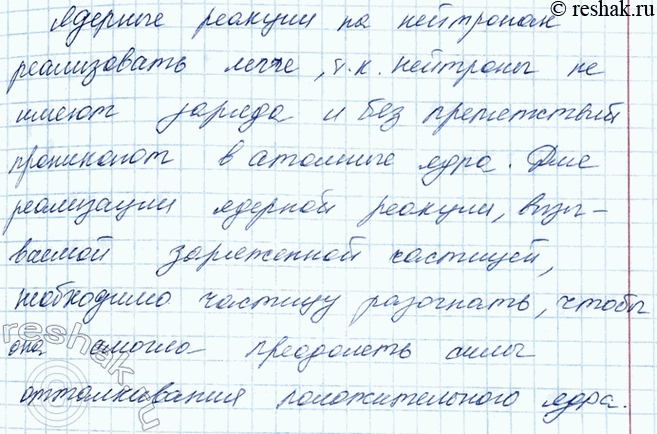 © reshak.ru
Ядерные реакции на нейтронах
реализовать легче, т.к. нейтроны не
имеют заряда и без препятствий
проникают в атомные ядра. Для
реализации ядерной реакции, вызы-
ваемой заряженной частицей,
необходимо частицу разогнать, чтобы
она смогла преодолеть силы
отталкивания положительного ядра.
reshak.ru